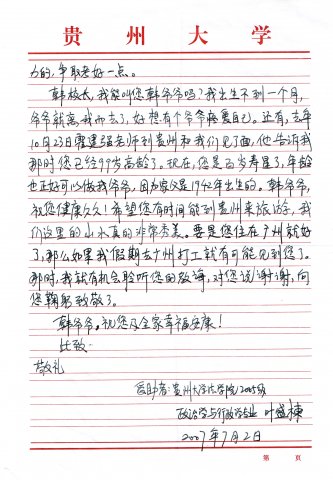 贵州大学
力的，争取考好一点。
韩校长，我能叫您韩爷爷吗？我出生不到一个月，
爷爷就离我而去了，好想有个爷爷疼爱自己。还有，去年
10月23日霍建强老师到贵州和我们见了面，他告诉我
那时您已经99岁高龄了。现在，您是百岁寿星了，年龄
也正好可以做我爷爷，因为家父是1942年出生的。韩爷爷，
祝您健康久久！希望您有时间能到贵州来旅游，我
们这里的山水真的非常秀美。要是您住在广州就好
了，那么如果我假期去广州打工就有可能见到您了。
那时，我就有机会聆听您的教诲，对您说谢谢，向
您鞠躬致敬了。
韩爷爷，祝您及全家幸福安康！
此致
敬礼
受助者：贵州大学法学院2005级
政治学与行政学专业 叶盛栋
2007年7月2日
第 页